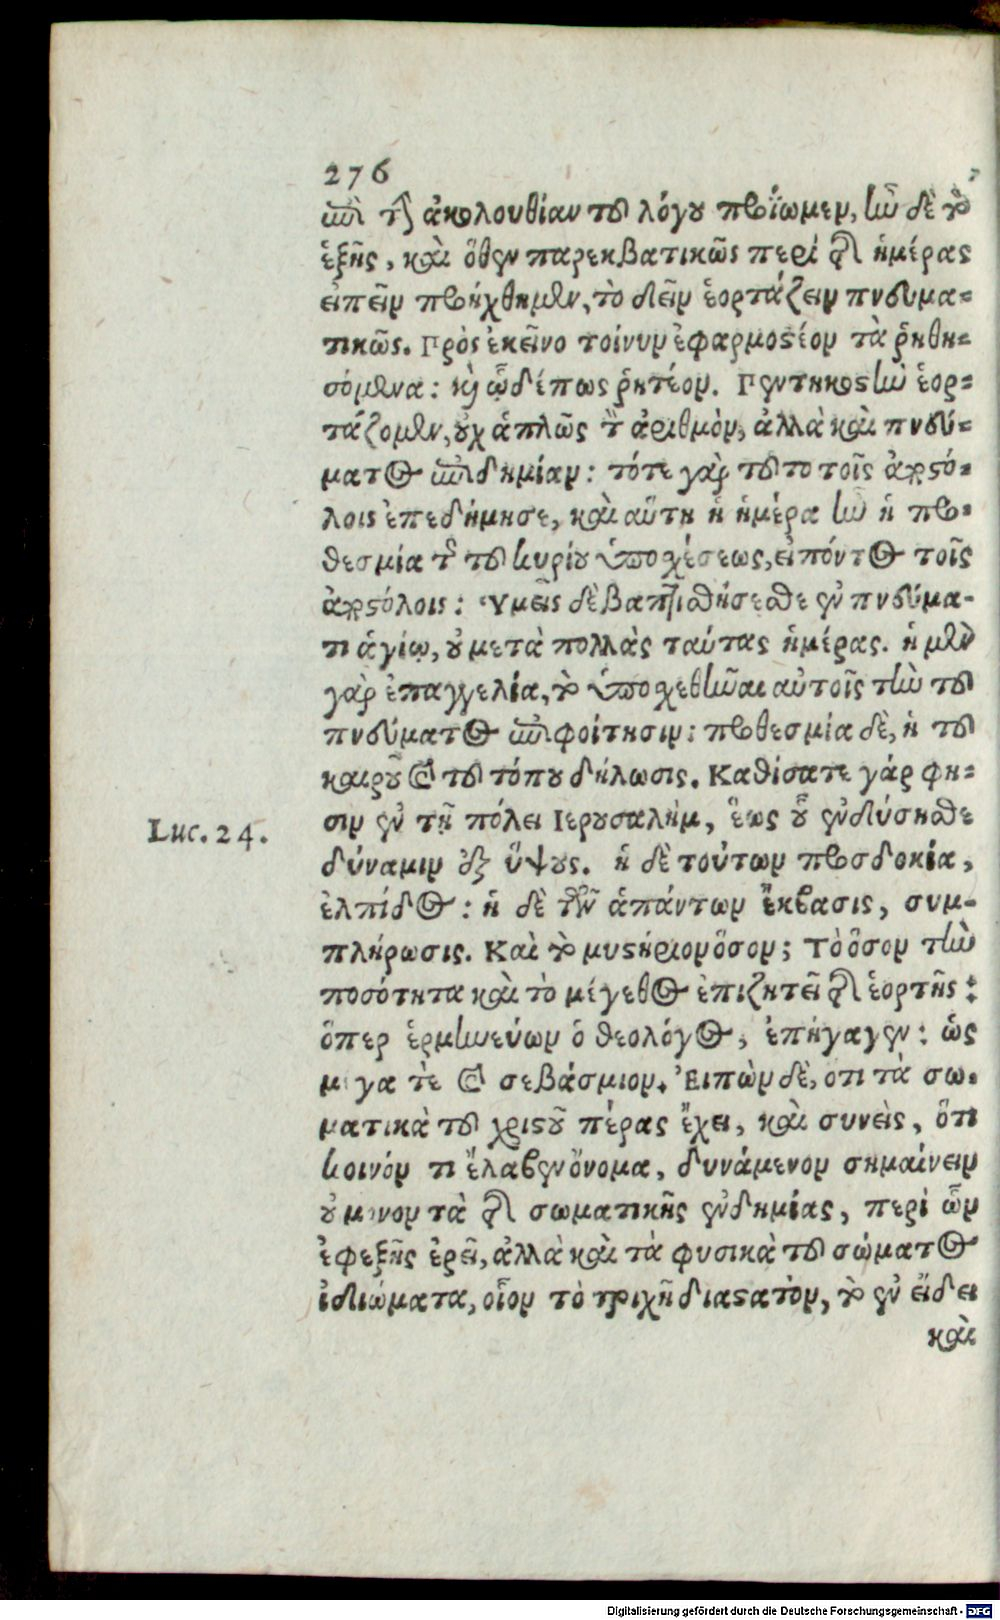 276
ἐπὶ τὴν ἀκολουθίαν τοῦ λόγου προΐωμεν, ἣν δὲ τὸ
ἑξῆς, καὶ ὅθεν παρεκβατικῶς περὶ τῆς ἡμέρας
εἰπεῖν προήχθημεν, τὸ δεῖν ἑορτάζειν πνευμα-
τικῶς. Πρὸς ἐκεῖνο τοίνυν ἐφαρμοστέον τὰ ῥηθη-
σόμενα: καὶ ᾧδέ πως ῥητέον. Πεντηκοστὴν ἑορ-
τάζομεν, οὐχ ἁπλῶς τὸν ἀριθμὸν, ἀλλὰ καὶ πνεύ-
ματος ἐπιδημίαν: τότε γὰρ τοῦτο τοῖς ἀποστό-
λοις ἐπεδήμησε, καὶ αὕτη ἡ ἡμέρα ἦν ἡ προ-
θεσμία τῆς τοῦ κυρίου ὑποσχέσεως, εἰπόντος τοῖς
ἀποστόλοις: Ὑμεῖς δὲ βαπτισθήσεσθε ἐν πνεύμα-
τι ἁγίῳ, οὐ μετὰ πολλὰς ταύτας ἡμέρας. ἡ μὲν
γὰρ ἐπαγγελία, τὸ ὑποσχεθῆναι αὐτοῖς τὴν τοῦ
πνεύματος ἐπιφοίτησιν: προθεσμία δὲ, ἡ τοῦ
καιροῦ καὶ τοῦ τόπου δήλωσις. Καθίσατε γάρ φη-
σιν ἐν τῇ πόλει Ιερουσαλὴμ, ἕως οὗ ἐνδύσησθε
Luc. 24.
δύναμιν ἐξ ὕψους. ἡ δὲ τούτων προσδοκία,
ἐλπίδος: ἡ δὲ τῶν ἁπάντων ἔκβασις, συμ-
πλήρωσις. Καὶ τὸ μυστήριον ὅσον; Τὸ ὅσον τὴν
ποσότητα καὶ τὸ μέγεθος ἐπιζητεῖ τῆς ἑορτῆς:
ὅπερ ἑρμηνεύων ὁ θεολόγος, ἐπήγαγεν: ὡς
μέγα τὲ καὶ σεβάσμιον. Εἰπὼν δὲ, ὅτι τὰ σω-
ματικὰ τοῦ χριστοῦ πέρας ἔχει, καὶ συνεὶς, ὅτι
κοινόν τι ἔλαβεν ὄνομα, δυνάμενον σημαίνειν
οὐ μόνον τὰ τῆς σωματικῆς ἐνδημίας, περὶ ὧν
ἐφεξῆς ἐρεῖ, ἀλλὰ καὶ τὰ φυσικὰ τοῦ σώματος
ἰδιώματα, οἷον τὸ τριχῆ διαστατὸν, τὸ ἐν εἴδει
καὶ
Digitalisierung gefördert durch die Deutsche Forschungsgemeinschaft - DFG